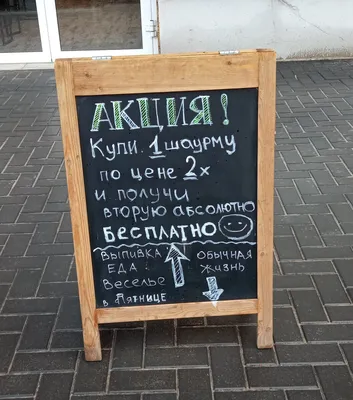 АКЦИЯ!
Купи 1 шаурму
по цене 2х
и получи
вторую абсолютно
БЕСПЛАТНО
ВЫПИВКА
ЕДА!
Веселье
в Пятнице
ОБЫЧНАЯ
ЖИЗНЬ